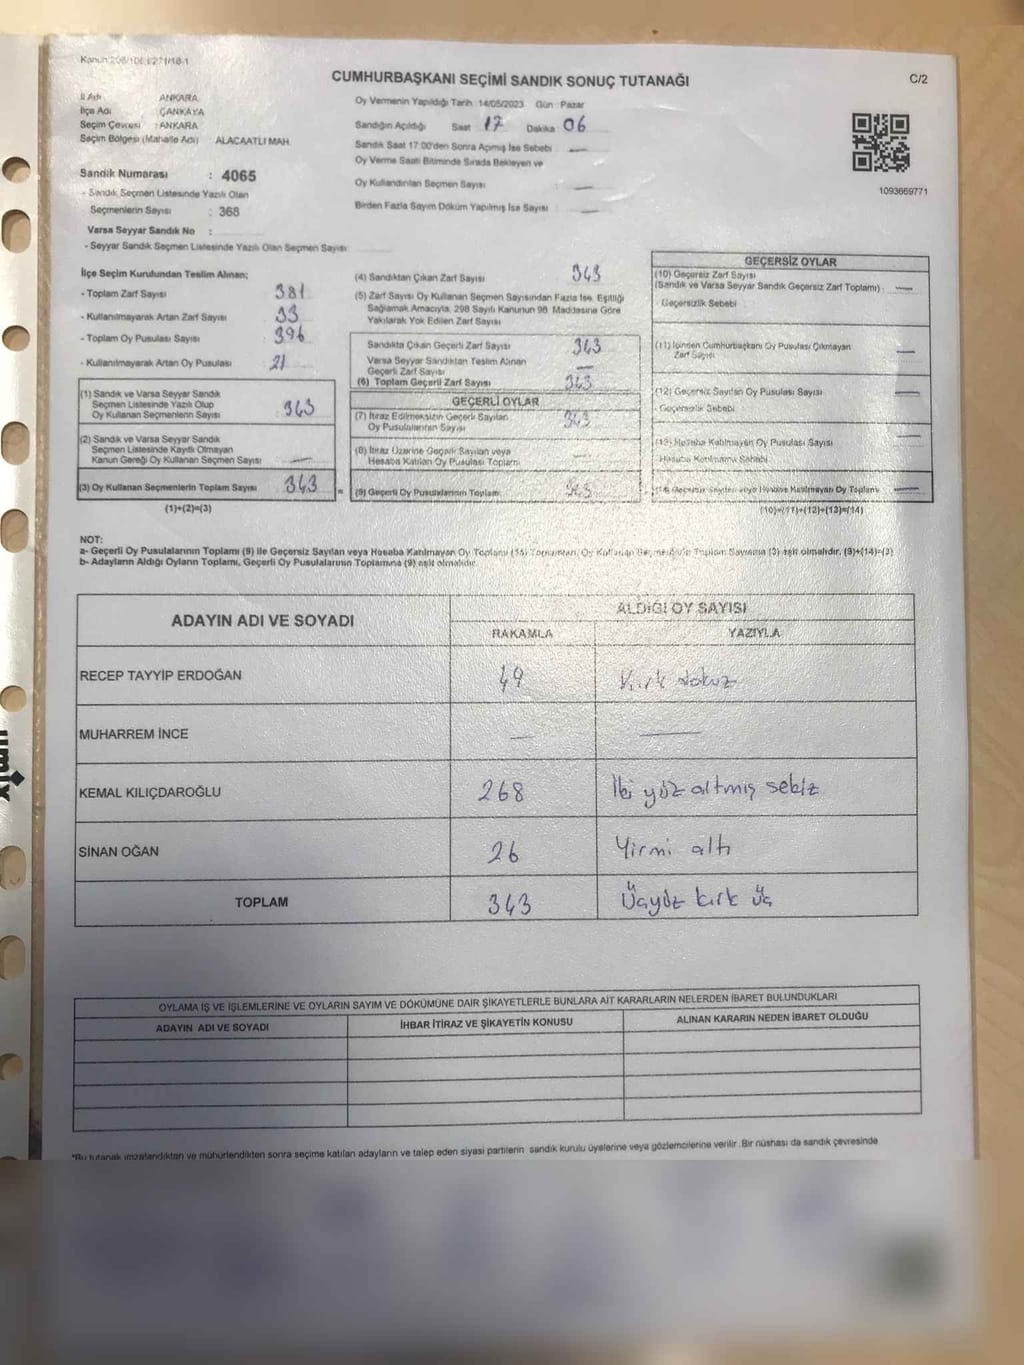 CUMHURBAŞKANI SEÇİMİ SANDIK SONUÇ TUTANAĞI
C/2
İl Adı ANKARA
İlçe Adı ÇANKAYA
Seçim Çevresi : ANKARA
Seçim Bölgesi (Mahalle Adı) ALACAATLI MAH.
Sandık Numarası : 4065
- Sandık Seçmen Listesinde Yazılı Olan
Seçmenlerin Sayısı : 368
Varsa Seyyar Sandık No :
- Seyyar Sandık Seçmen Listesinde Yazılı Olan Seçmen Sayısı
Oy Vermenin Yapıldığı Tarih 14/05/2023 Gün : Pazar
Sandığın Açıldığı Saat 17 Dakika 06
Sandık Saat 17:00'den Sonra Açımış İse Sebebi —
Oy Verme Saati Bitiminde Sırada Bekleyen ve
Oy Kullandırılan Seçmen Sayısı : —
Birden Fazla Sayım Döküm Yapılmış İse Sayısı : —
1093669771
İlçe Seçim Kurulundan Teslim Alınan;
- Toplam Zarf Sayısı 381
- Kullanılmayarak Artan Zarf Sayısı 33
- Toplam Oy Pusulası Sayısı 396
- Kullanılmayarak Artan Oy Pusulası 21
(1) Sandık ve Varsa Seyyar Sandık
Seçmen Listesinde Yazılı Olup
Oy Kullanan Seçmenlerin Sayısı 343
(2) Sandık ve Varsa Seyyar Sandık
Seçmen Listesinde Kayıtlı Olmayan
Kanun Gereği Oy Kullanan Seçmen Sayısı —
(3) Oy Kullanan Seçmenlerin Toplam Sayısı 343
(1)+(2)=(3)
(4) Sandıktan Çıkan Zarf Sayısı 343
(5) Zarf Sayısı Oy Kullanan Seçmen Sayısından Fazla İse, Eşitliği
Sağlamak Amacıyla, 298 Sayılı Kanunun 98. Maddesine Göre
Yakılarak Yok Edilen Zarf Sayısı
Sandıkta Çıkan Geçerli Zarf Sayısı 343
Varsa Seyyar Sandıktan Teslim Alınan
Geçerli Zarf Sayısı —
(6) Toplam Geçerli Zarf Sayısı 343
GEÇERLİ OYLAR
(7) İtiraz Edilmeksizin Geçerli Sayılan
Oy Pusulalarının Sayısı 343
(8) İtiraz Üzerine Geçerli Sayılan veya
Hesaba Katılan Oy Pusulası Toplamı —
= (9) Geçerli Oy Pusulalarının Toplamı 343
GEÇERSİZ OYLAR
(10) Geçersiz Zarf Sayısı
(Sandık ve Varsa Seyyar Sandık Geçersiz Zarf Toplamı) : —
- Geçersizlik Sebebi
(11) İçinden Cumhurbaşkanı Oy Pusulası Çıkmayan
Zarf Sayısı —
(12) Geçersiz Sayılan Oy Pusulası Sayısı —
- Geçersizlik Sebebi
(13) Hesaba Katılmayan Oy Pusulası Sayısı —
Hesaba Katılmama Sebebi
(14) Geçersiz Sayılan veya Hesaba Katılmayan Oy Toplamı —
(10)+(11)+(12)+(13)=(14)
NOT:
a- Geçerli Oy Pusulalarının Toplamı (9) ile Geçersiz Sayılan veya Hesaba Katılmayan Oy Toplamı Oy Kullanan Toplam Sayısına (3) eşit olmalıdır. (9)+(14)=(3)
b- Adayların Aldığı Oyların Toplamı, Geçerli Oy Pusulalarının Toplamına (9) eşit olmalıdır.
ADAYIN ADI VE SOYADI
ALDIĞI OY SAYISI
RAKAMLA YAZIYLA
RECEP TAYYİP ERDOĞAN 49 Kırk dokuz
MUHARREM İNCE — —
KEMAL KILIÇDAROĞLU 268 İki yüz altmış sekiz
SİNAN OĞAN 26 Yirmi altı
TOPLAM 343 Üçyüz kırk üç
OYLAMA İŞ VE İŞLEMLERİNE VE OYLARIN SAYIM VE DÖKÜMÜNE DAİR ŞİKAYETLERLE BUNLARA AİT KARARLARIN NELERDEN İBARET BULUNDUKLARI
ADAYIN ADI VE SOYADI İHBAR İTİRAZ VE ŞİKAYETİN KONUSU ALINAN KARARIN NEDEN İBARET OLDUĞU
*Bu tutanak imzalandıktan ve mühürlendikten sonra seçime katılan adayların ve talep eden siyasi partilerin sandık kurulu üyelerine veya gözlemcilerine verilir. Bir nüshası da sandık çevresinde